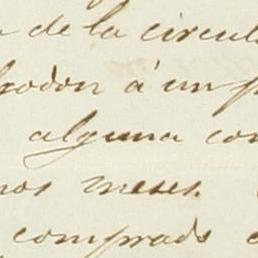 de la circul
godon á un p
alguna con
nos meses.
comprado